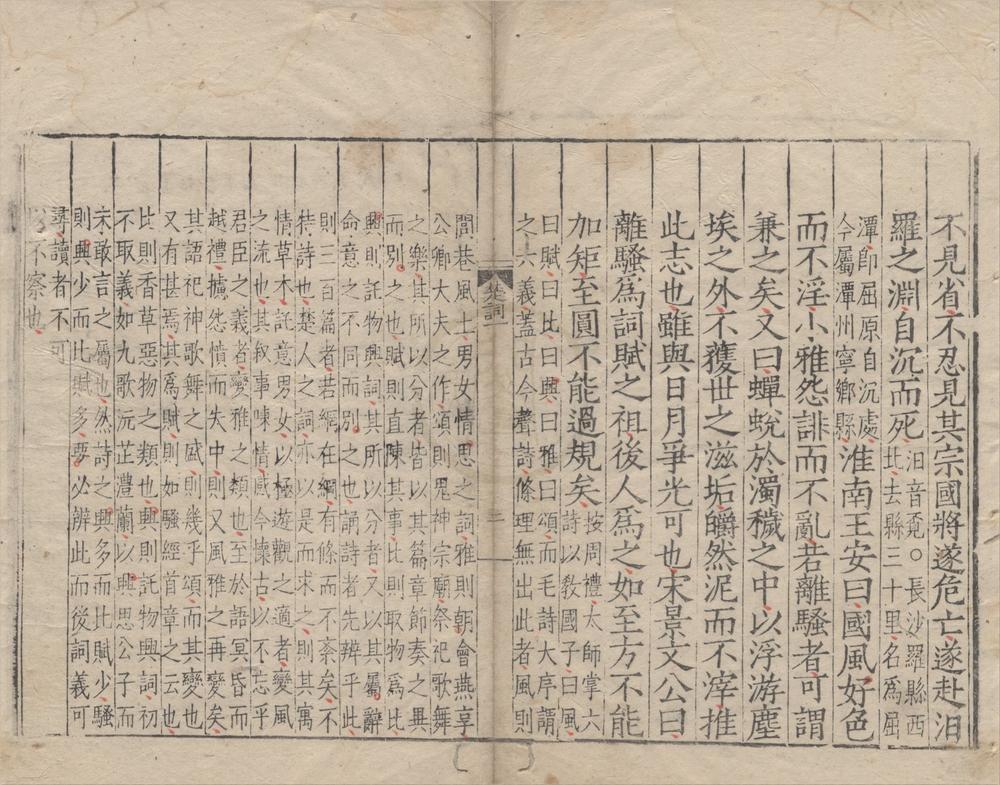 不見省不忍見其宗國將遂危亡遂赴汨
羅之淵自沉而死
汨音覔○長沙羅縣西
北去縣三十里名爲屈
潭即屈原自沉處
今屬潭州寧鄉縣
淮南王安曰國風好色
而不淫小雅怨誹而不亂若離騷者可謂
兼之矣又曰蟬蛻於濁穢之中以浮游塵
埃之外不獲世之滋垢皭然泥而不滓推
此志也雖與日月爭光可也宋景文公曰
離騷爲詞賦之祖後人爲之如至方不能
加矩至圓不能過規矣
按周禮太師掌六
詩以敎國子曰風
曰賦曰比曰興曰雅曰頌而毛詩大序謂
之六義蓋古今聲詩條理無出此者風則
楚詞一
三
閭巷風土男女情思之詞雅則朝會燕享
公卿大夫之作頌則鬼神宗廟祭祀歌舞
之樂其所以分者皆以其篇章節奏之異
而別之也賦則直陳其事比則取物爲比
興則託物興詞其所以分者又以其屬辭
命意之不同而別之也誦詩者先辨乎此
則三百篇者若網在綱有條而不紊矣不
特詩也楚人之詞亦以是而求之則其寓
情草木託意男女以極遊觀之適者變風
之流也其叙事陳情感今懷古以不忘乎
君臣之義者變雅之類也至於語冥昏而
越禮攄怨憤而失中則又風雅之再變矣
其語祀神歌舞之盛則幾乎頌而其變也
又有甚焉其爲賦則如騷經首章之云也
比則香草惡物之類也興則託物興詞初
不取義如九歌沅芷澧蘭以興思公子而
未敢言之屬也然詩之興多而比賦少騷
則興少而比賦多要必辨此而後詞義可
尋讀者不可
不察也